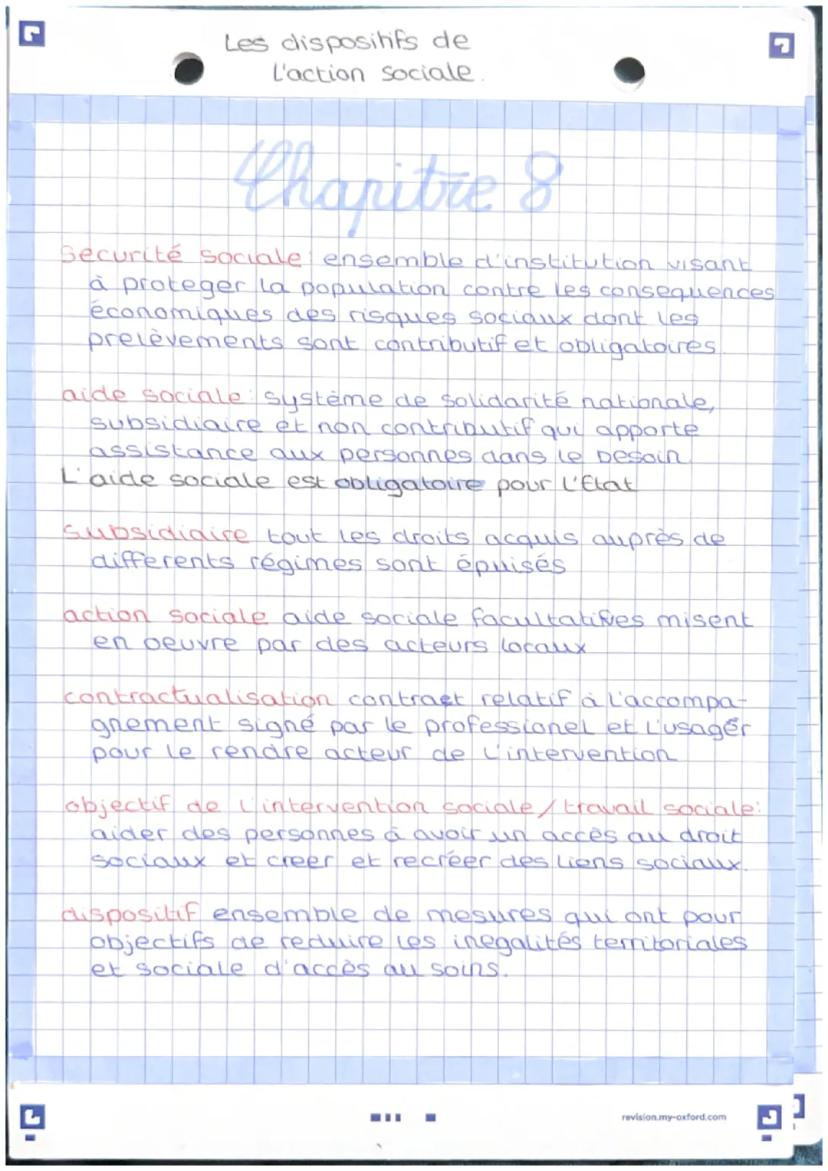 Les dispositifs de
l'action sociale.
Chapitre 8
Securité sociale: ensemble d'institution visant
à proteger la population contre les consequences
économiques des risques sociaux dont les
prelèvements sont contributif et obligatoires.
aide sociale: système de solidarité nationale,
subsidiaire et non contributif qui apporte
assistance aux personnes dans le besoin.
L'aide sociale est obligatoire pour l'Etat
subsidiaire tout les droits acquis auprès de
differents régimes sont épuisés
action sociale aide sociale facultatives misent
en oeuvre par des acteurs locaux
contractualisation contraet relatif à l'accompa-
gnement signé par le professionel et l'usager
pour le rendre acteur de l'intervention
objectif de l'intervention sociale/travail sociale:
aider des personnes à avoir un accès au droit
sociaux et creer et recréer des liens sociaux.
dispositif ensemble de mesures qui ont pour
objectifs de reduire les inegalités territoriales
et sociale d'accès au soins.
revision.my-oxford.com